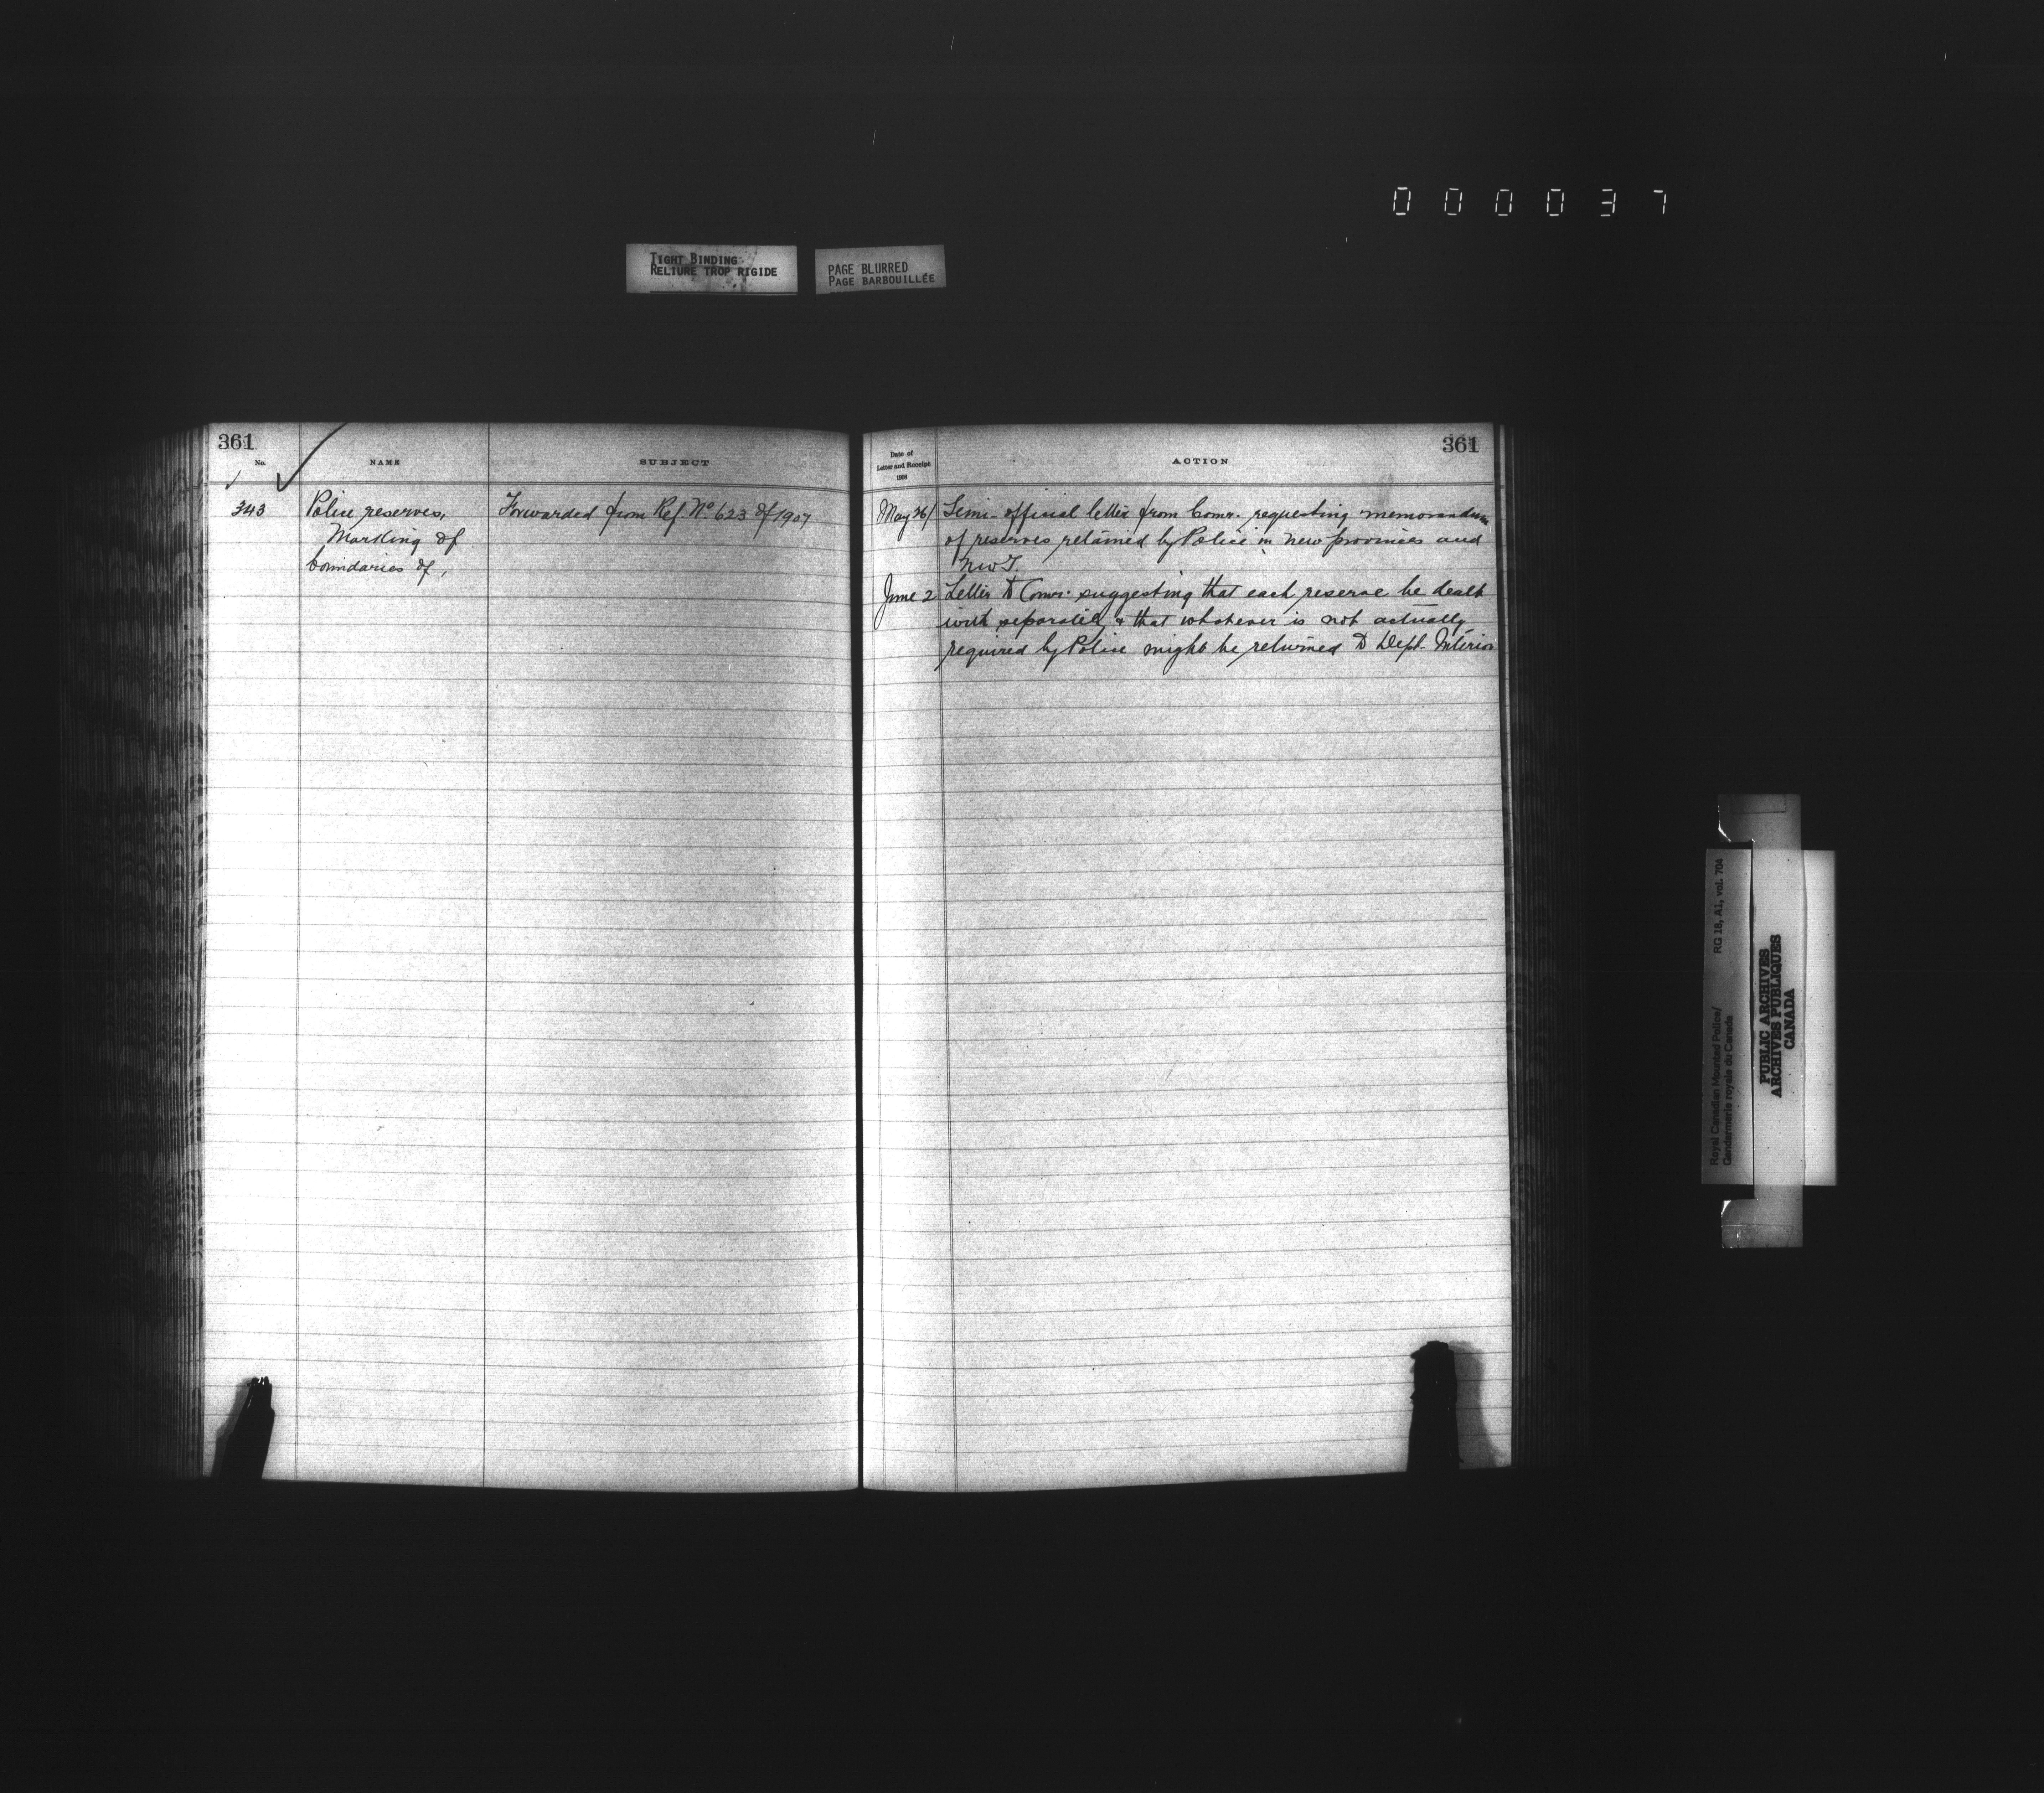 000037
TIGHT BINDING
RELIURE TROP RIGIDE
PAGE BLURRED
PAGE BARBOUILLÉE
361
No.
NAME
SUBJECT
343
Police reserves,
Marking of
boundaries of,
Forwarded from Ref. No. 623 of 1907
361
Date of
Letter and Receipt
1908
ACTION
May 26/ Semi-official letter from Comr. requesting memorandum
of reserves retained by Police in new provinces and
NWT.
June 2 Letter to Comr. suggesting that each reserve be dealt
with separately & that whatever is not actually
required by Police might be returned to Dept. Interior
Royal Canadian Mounted Police/
Gendarmerie royale du Canada
RG 18, A1, vol. 704
PUBLIC ARCHIVES
ARCHIVES PUBLIQUES
CANADA